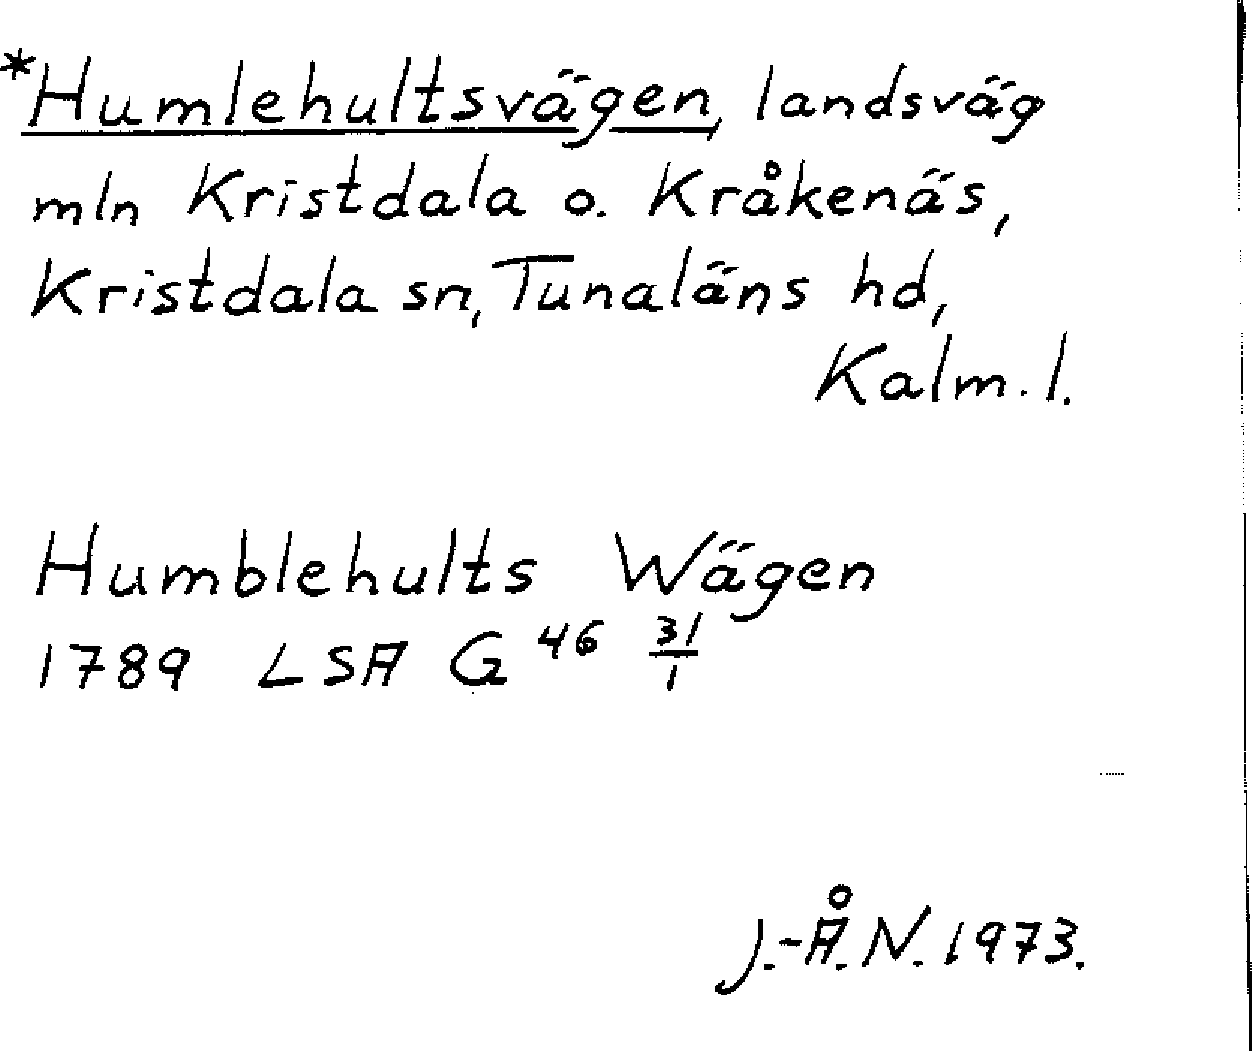 *Humlehultsvägen, landsväg
mln Kristdala o. Kråkenäs,
Kristdala sn, Tunaläns hd,
Kalm. l.
Humblehults Wägen
1789 LSA G 46 31/1
J.-Å. N. 1973.